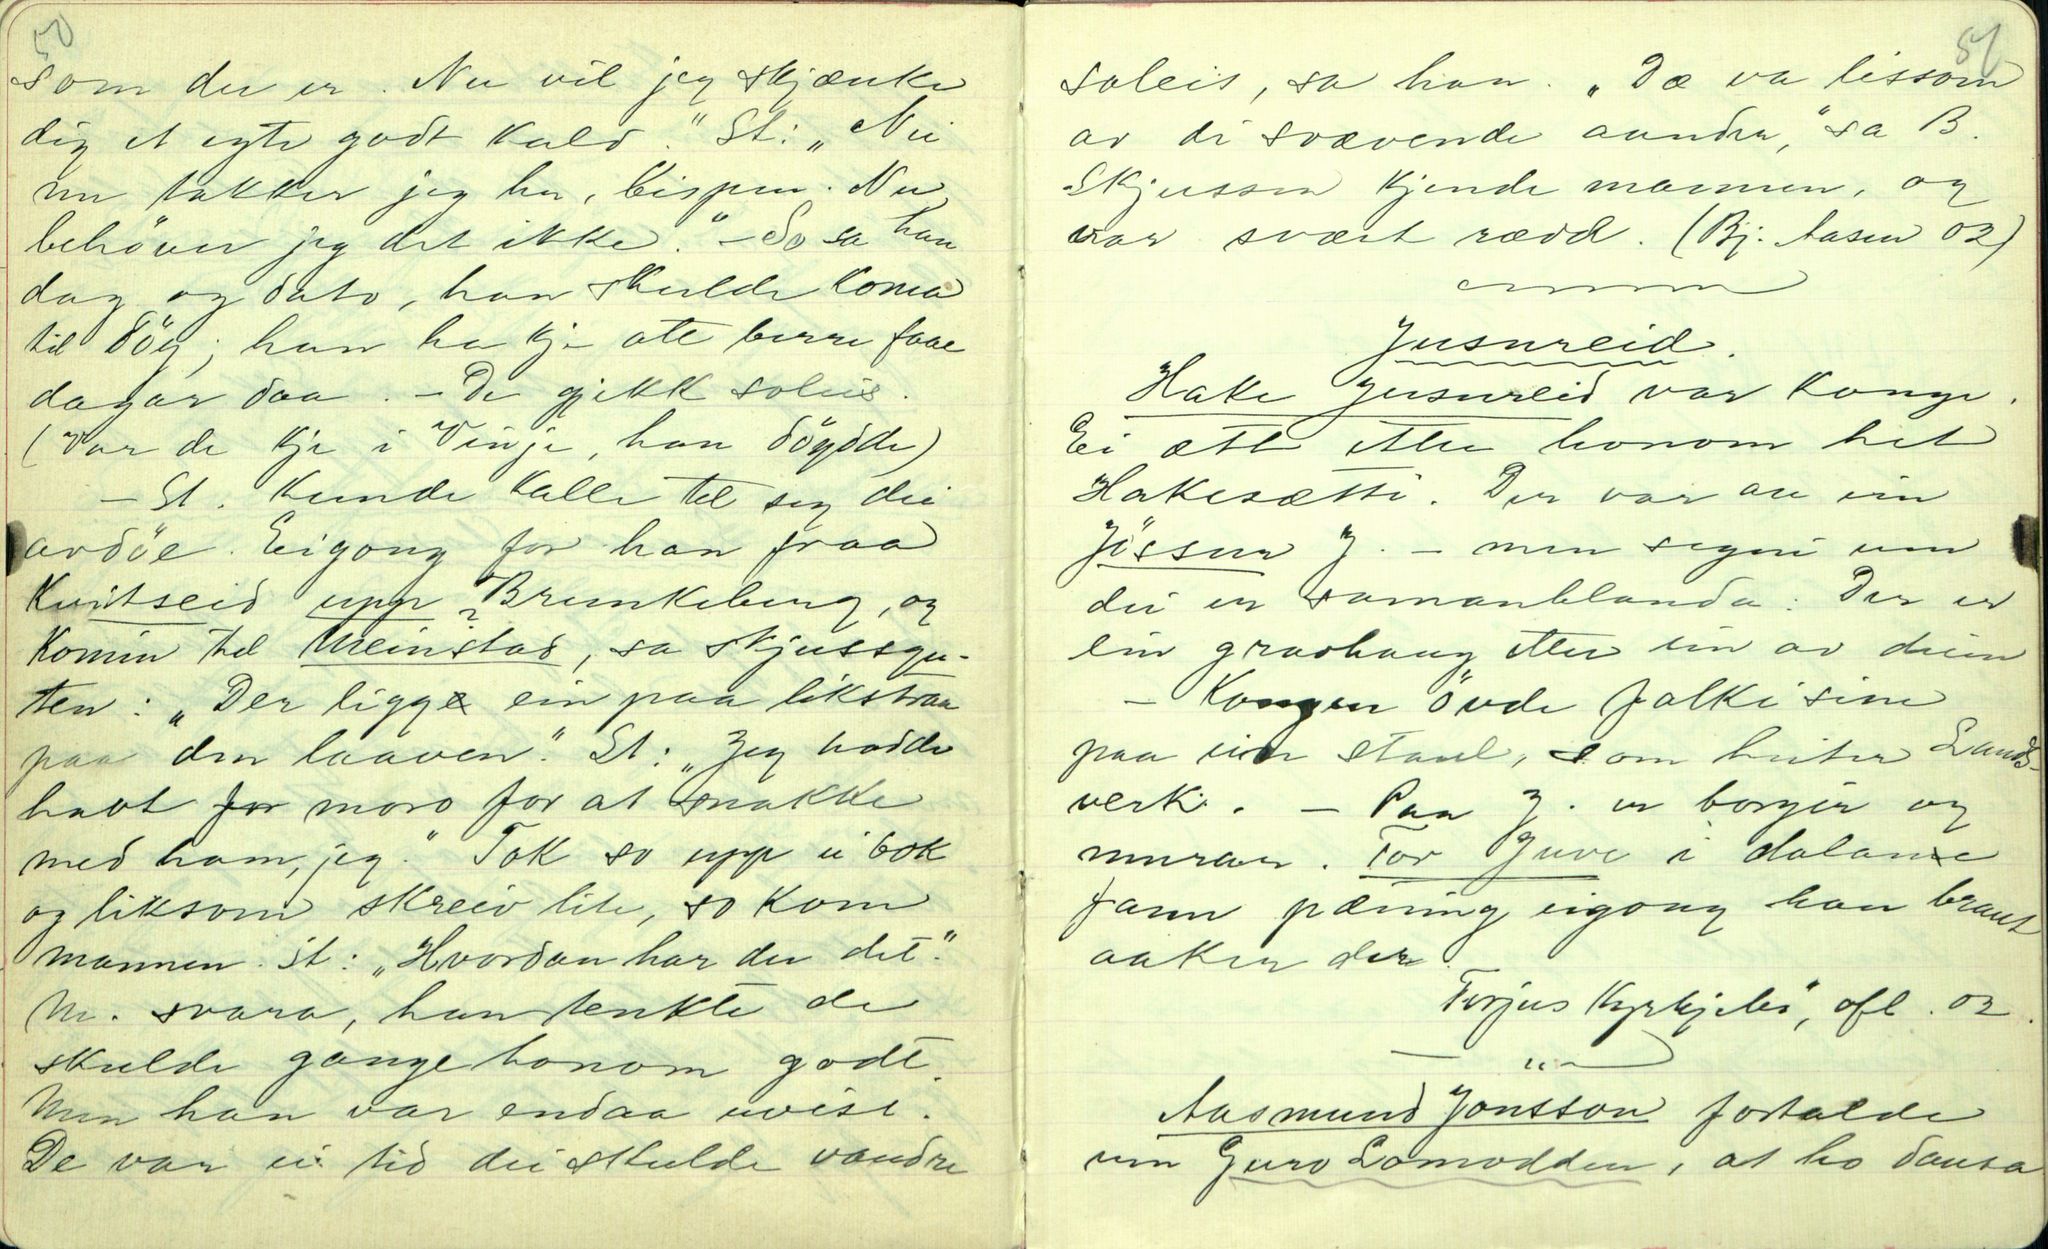 50
som du er. Nu vil jeg skjænke
dig et egte godt kald." St: „Nei
nu takker jeg hr. bispen. Nu
behöver jeg det ikke." – So sa han
dag og dato, han skulde koma
til döy; han ha kje att berre faae
dagar daa. – De gjekk soleis.
(Var de kje i Vinje, han döydde)
– St. kunde kalle til seg dei
avdöe. Eigong for han fraa
Kvitseid upp Brunkeberg, og
komin til Meinstad, sa skjussgu-
ten: „Der ligge ein paa likstraa
paa den laaven." St: „Jeg hadde
havt for moro for at snakke
med ham, jeg." Tok so upp ei bok
og liksom skreiv lite, so kom
mannen. St: „Hvordan har du det".
M. svara, han tenkte de
skulde gange honom godt.
Men han var endaa uviss.
De var ei tid dei skulde vandre
51
soleis, sa han. „Dæ va lissom
av di svævende aander," sa B.
Skjussen kjende mannen, og
var svært rædd. (Bj. Aasen 02)
Jusureid.
Hake Jusureid var konge.
Ei ætt etter honom het
Hakesætti. Der var au ein
Jössur J. – men segni um
dei er samanblanda. Der er
ein gravhaug etter ein av deim
– Kongen övde folki sine
paa ein staul, som heiter Lands-
verk. – Paa J. er borger og
murar. Tor Juve i dalane
fann pæning eigong han braut
aaker der.
Torjus Kyrkjebö, ofl. 02.
Aasmund Jonsson fortalde
um Guro Lomodden, at ho dansa